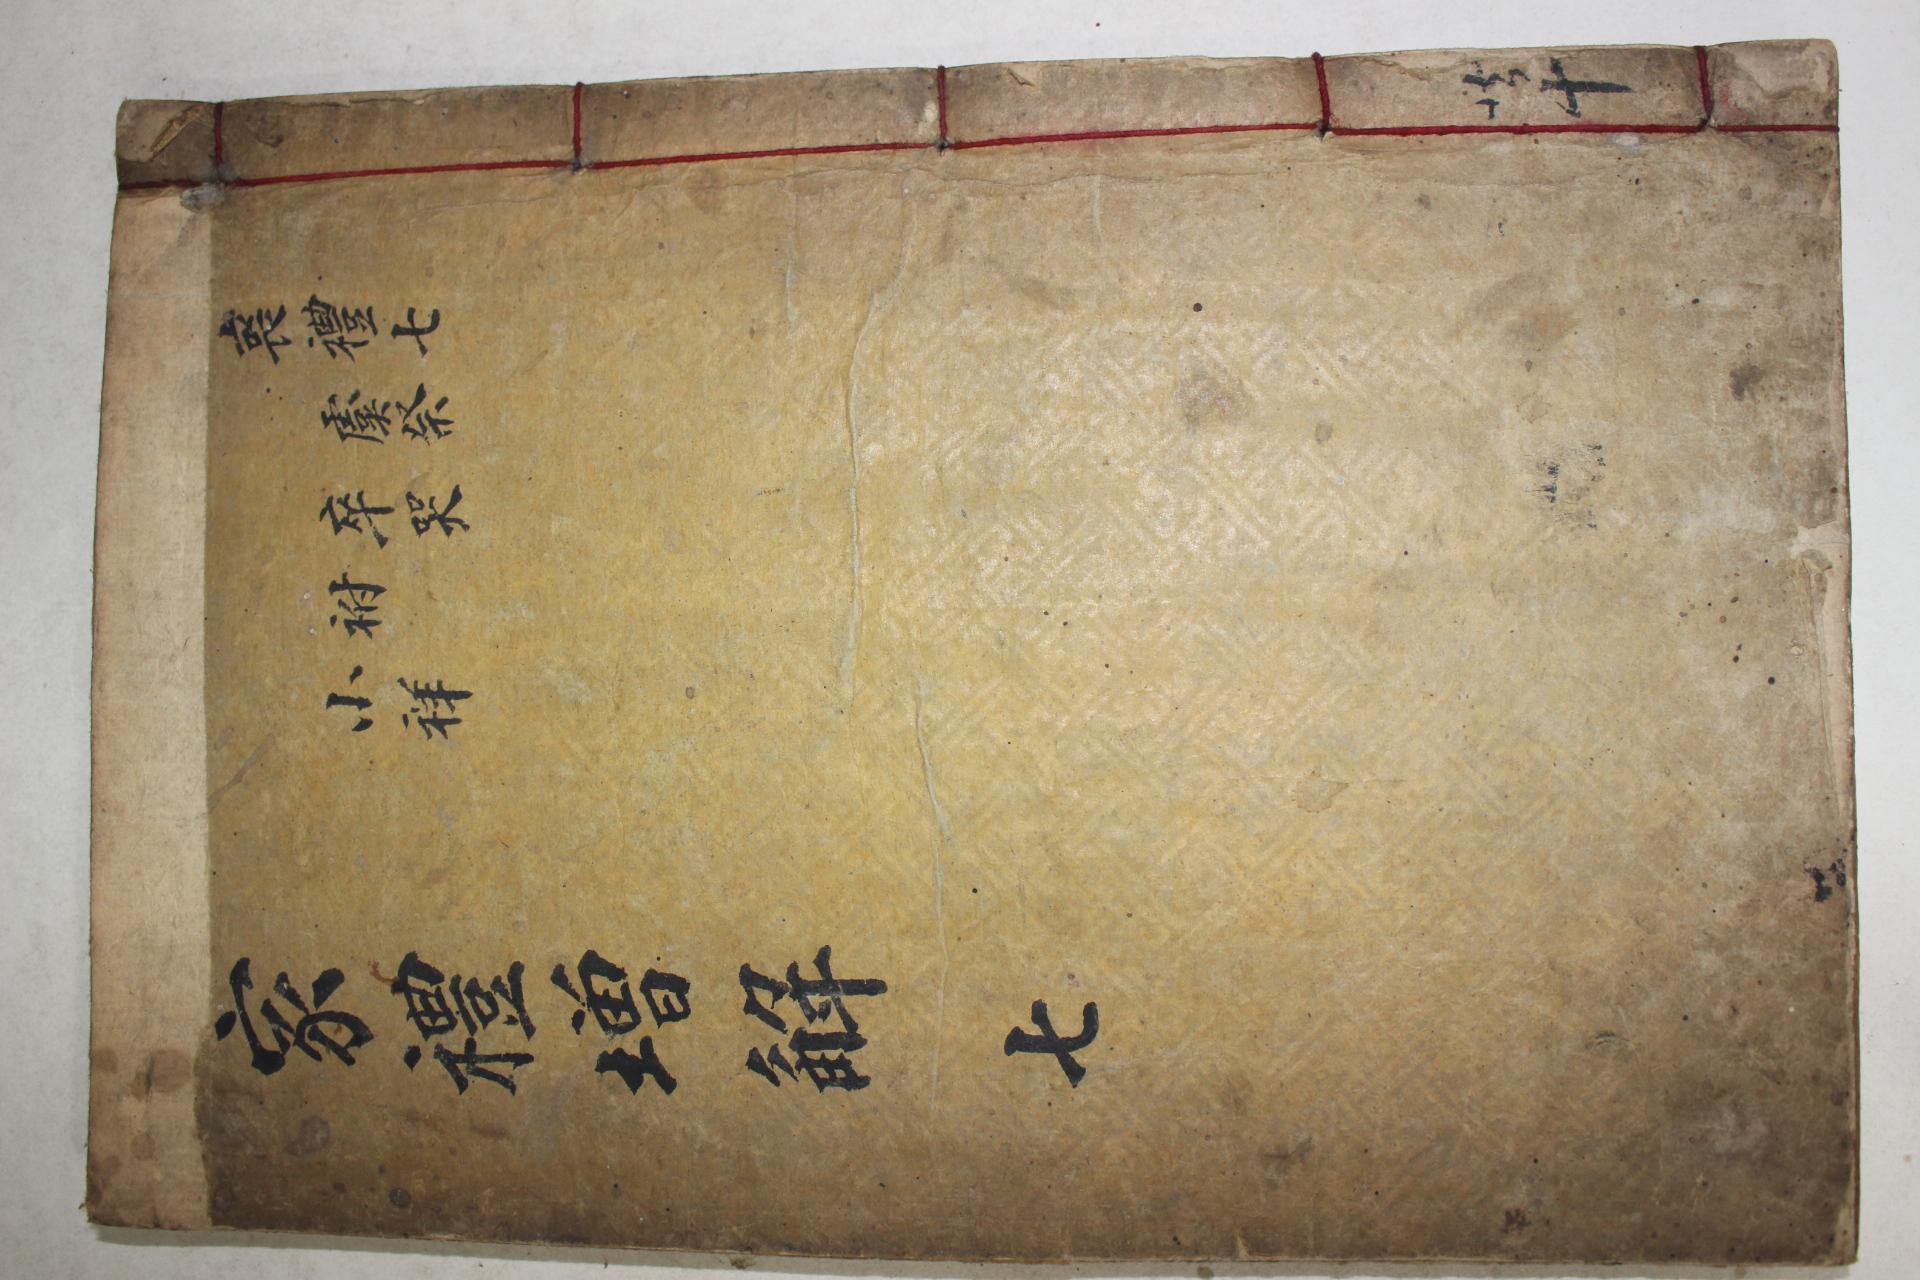 共十
喪禮七
虞祭
卒哭
祔
小祥
家禮增解 七